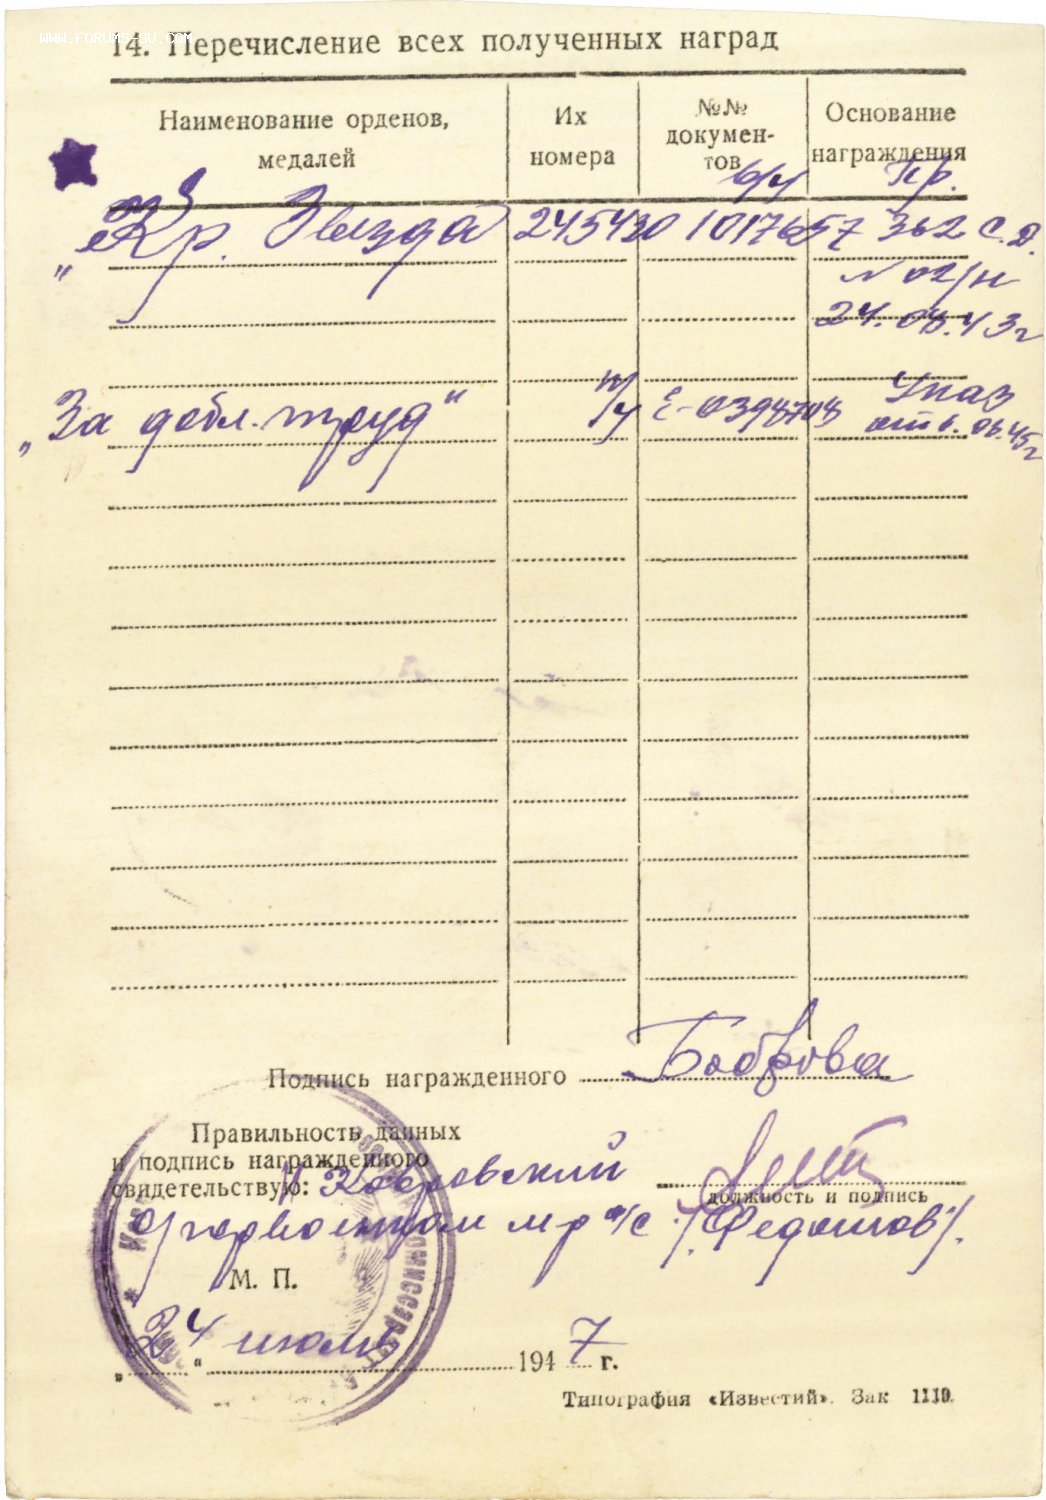 WWW.FORUMS-SU.COM
14. Перечисление всех полученных наград
Наименование орденов, медалей
Их номера
№№ документов
Основание награждения
в/у Пр.
„Кр. Звезда 245420 101765 57 362 С.Д.
24.08.43г
„За добл. труд“ н/у Е-0398708 Указ
от 6.06.45г
Подпись награжденного Боброва
Правильность данных
и подпись награжденного
свидетельствую: Ковровский
горвоенком м-р а/с /Федотов/.
должность и подпись
М. П.
„24“ июля 1947 г.
Типография «Известий». Зак 1119.